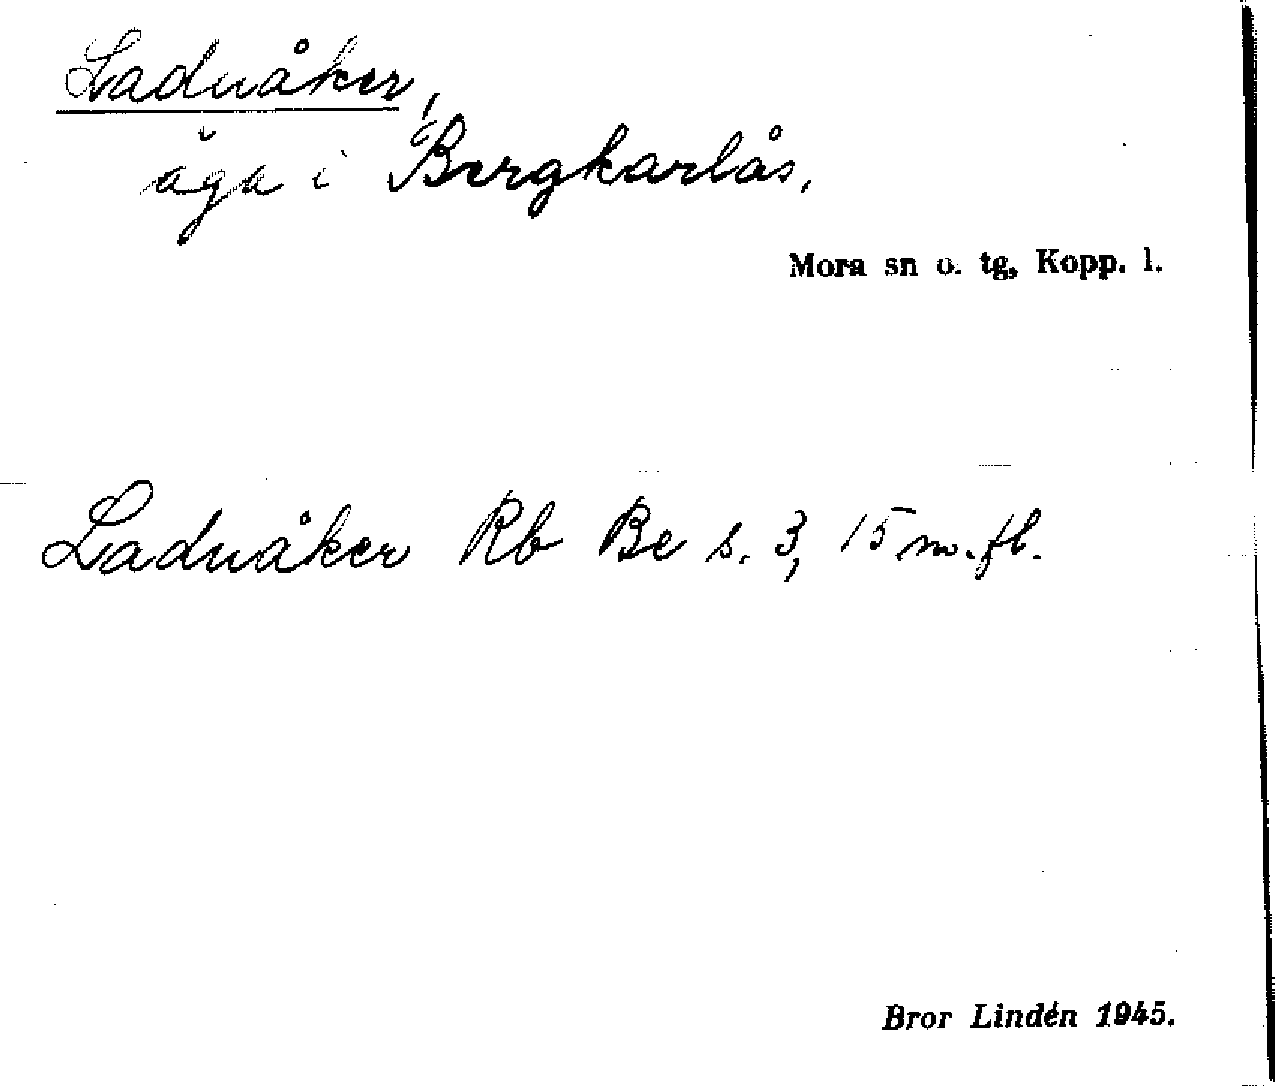 Ladnåker,
åga i Bergkarlås,
Mora sn o. tg, Kopp. l.
Ladnåker Rb Be s. 3, 15 m.fl.
Bror Lindén 1945.